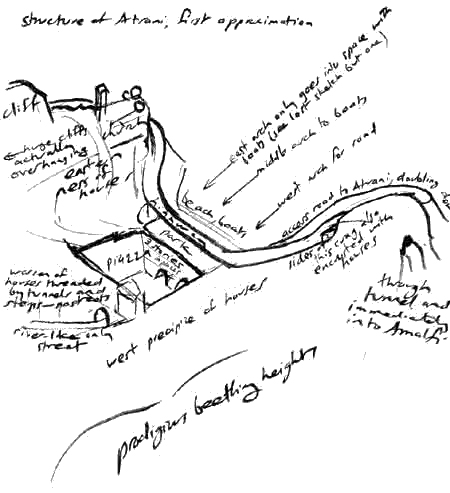 structure of Atrani, first approximation
cliff
church
huge cliffs
actually
overhanging
houses
east arch only goes into space with
boats (see last sketch but one)
middle arch to boats
west arch for road
access road to Atrani, doubling
beach boats
park
piazza
warren of
houses threaded
by tunnels and
steps—no streets
river-like only
street
west precipice of houses
sides of
this crag also
encrypted with
houses
through
tunnel and
immediately
into Amalfi
prodigious beetling heights